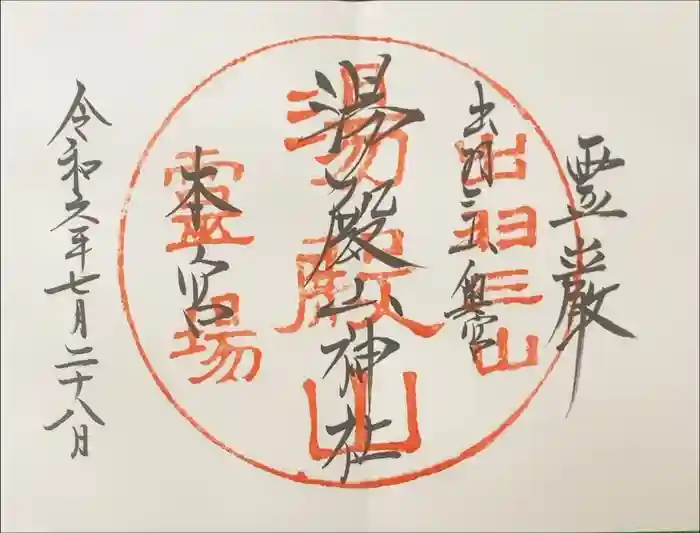 霊巌
出羽三山奥宮
湯殿山神社
本宮
令和六年七月二十八日
出羽三山
湯殿山
霊場